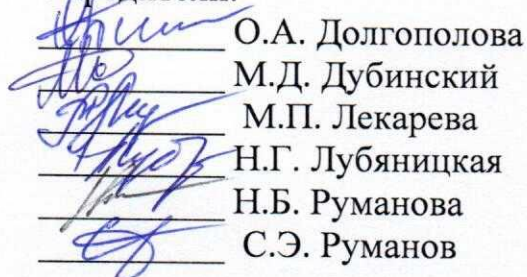 О.А. Долгополова
М.Д. Дубинский
М.П. Лекарева
Н.Г. Лубяницкая
Н.Б. Руманова
С.Э. Руманов